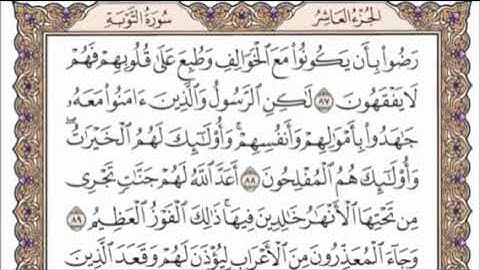 الجزء العاشر سورة التوبة
رَضُوا۟ بِأَن يَكُونُوا۟ مَعَ ٱلْخَوَالِفِ وَطُبِعَ عَلَىٰ قُلُوبِهِمْ فَهُمْ
لَا يَفْقَهُونَ ٨٧ لَٰكِنِ ٱلرَّسُولُ وَٱلَّذِينَ ءَامَنُوا۟ مَعَهُۥ
جَٰهَدُوا۟ بِأَمْوَٰلِهِمْ وَأَنفُسِهِمْ ۚ وَأُو۟لَٰٓئِكَ لَهُمُ ٱلْخَيْرَٰتُ ۖ
وَأُو۟لَٰٓئِكَ هُمُ ٱلْمُفْلِحُونَ ٨٨ أَعَدَّ ٱللَّهُ لَهُمْ جَنَّٰتٍ تَجْرِى
مِن تَحْتِهَا ٱلْأَنْهَٰرُ خَٰلِدِينَ فِيهَا ۚ ذَٰلِكَ ٱلْفَوْزُ ٱلْعَظِيمُ ٨٩
وَجَآءَ ٱلْمُعَذِّرُونَ مِنَ ٱلْأَعْرَابِ لِيُؤْذَنَ لَهُمْ وَقَعَدَ ٱلَّذِينَ